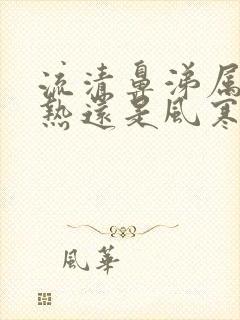 流清鼻涕属
熱還是風寒
風華